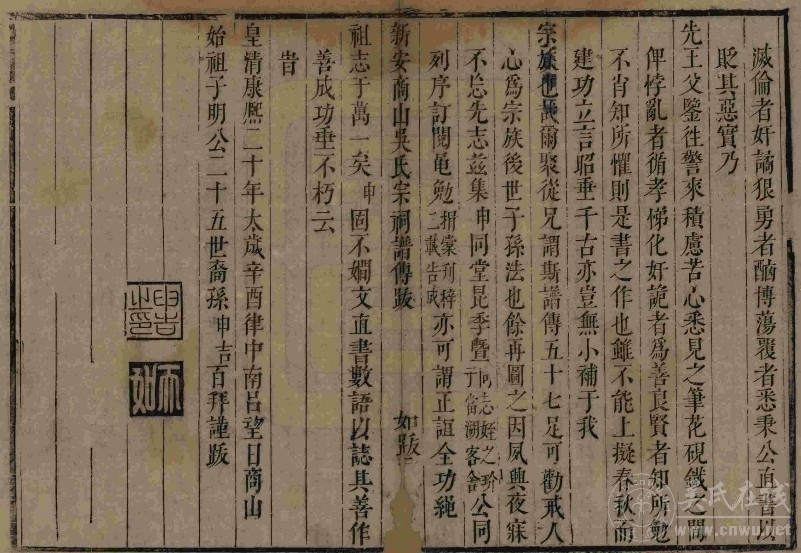 滅倫者奸譎狠勇者酗博蕩覆者悉秉公直書以
貶其惡實乃
先王父鑒徃警來積慮苦心悉見之筆花硯鐵之間
俾悖亂者循孝悌化奸詭者為善良賢者知所勉
不肖知所懼則是書之作也雖不能上擬春秋而
建功立言昭垂千古亦豈無小補于我
宗族也哉爾聚從兄謂斯譜傳五十七足可勸戒人
心為宗族後世子孫法也餘再圖之因夙興夜寐
不忘先志茲集申同堂昆季暨同志姪之珍于當湖客舍公同
列序訂閱黽勉捐棠刋梓二載告成亦可謂正誼全功繩
新安商山吳氏宗祠譜傳跋
如跋二
祖志于萬一矣申固不嫺文直書數語以誌其善作
善成功垂不朽云
旹
皇清康熈二十年太歲辛酉律中南呂望日商山
始祖子明公二十五世裔孫申吉百拜謹跋
申吉之印
吳氏在线
www.cnwu.net